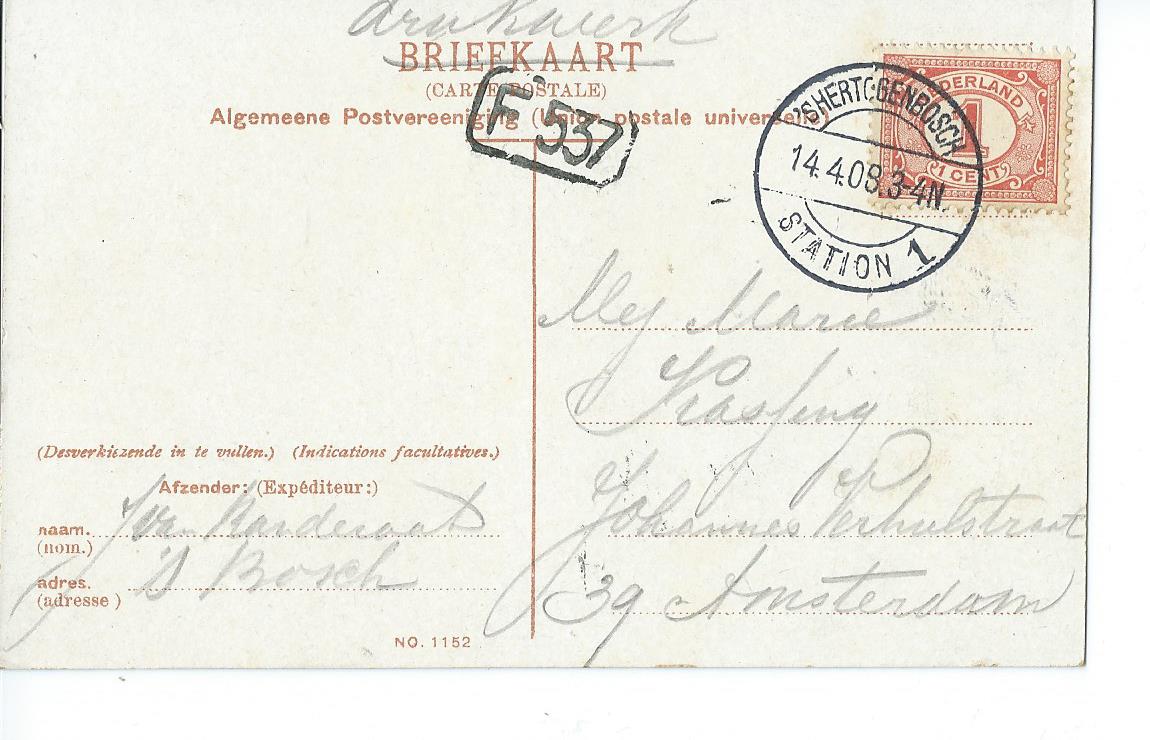 drukwerk
BRIEFKAART
(CARTE POSTALE)
Algemeene Postvereeniging (Union postale universelle)
F 537
'SHERTOGENBOSCH
14.4.08.3-4N.
STATION 1
NEDERLAND
1
1 CENT
Mej Marie
Johannes Verhulstraat
39 Amsterdam
(Desverkiezende in te vullen.) (Indications facultatives.)
Afzender: (Expéditeur:)
naam.
(nom.)
adres. 's Bosch
(adresse )
NO. 1152